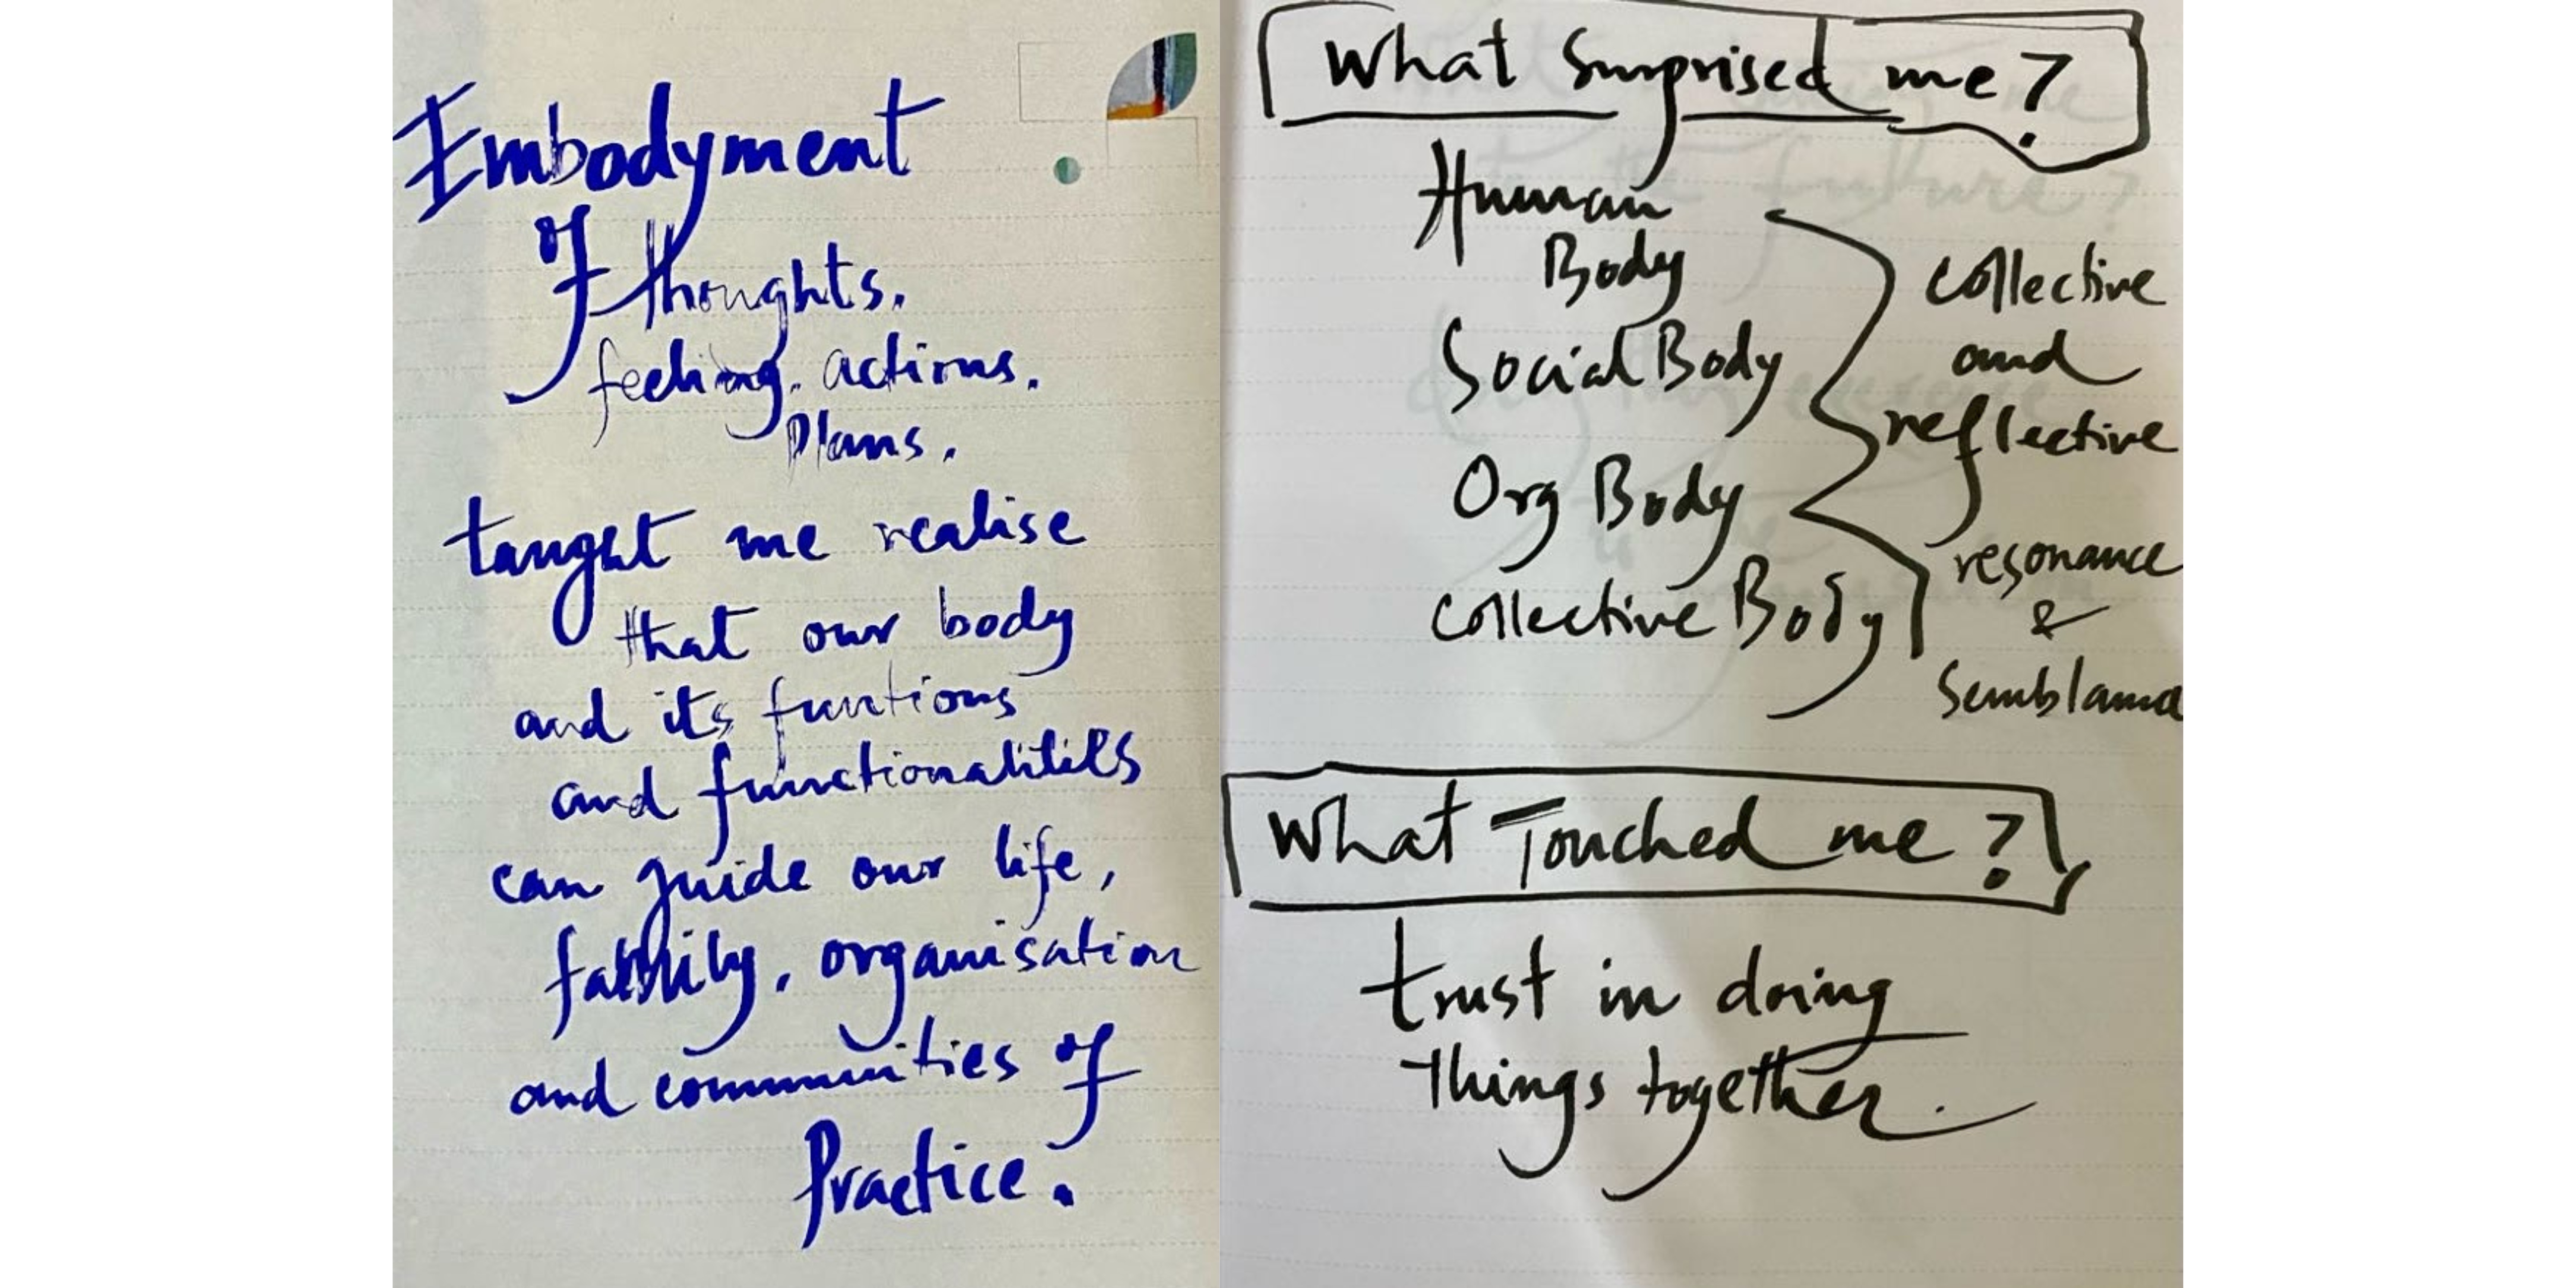 Embodyment
of
thoughts.
feeling. actions.
Plans.
taught me realise
that our body
and its funtions
and functionalities
can guide our life,
family, organisation
and communities of
Practice.
What Surprised me?
Human
Body
Social Body
Org Body
Collective Body
Collective
and
reflective
resonance
&
What Touched me?
trust in doing
things together.